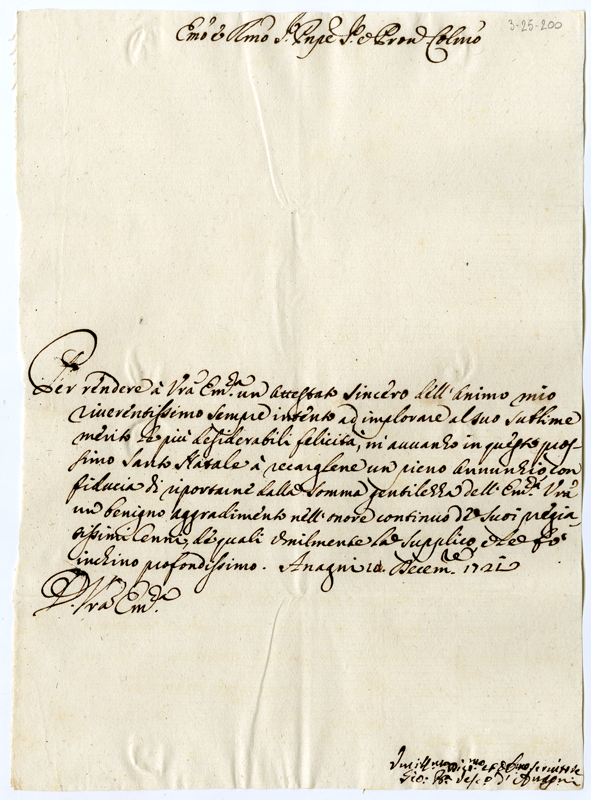 3-25-200
Emo e Rmo Sr. Pnpe Sr. e Pron Colmo
Per rendere à Vra Emza. un attestato sincero dell'animo mio
riverentissimo sempre intento ad implorare al suo sublime
merito le più desiderabili felicità, m'avvanzo in questo pros-
simo Santo Natale à recarglene un pieno annunzio con
fiducia di riportarne dalla somma gentilezza dell'Emza. Vra
un benigno aggradimento nell'onore continuo de suoi pregia-
tissimi cenni, de quali umilmente la supplico, e le fo
inchino profondissimo. Anagni Decem.re 1721
D. Vra Emza.
Umill.mo
Gio. Bta. Vesc.o d'Anagni